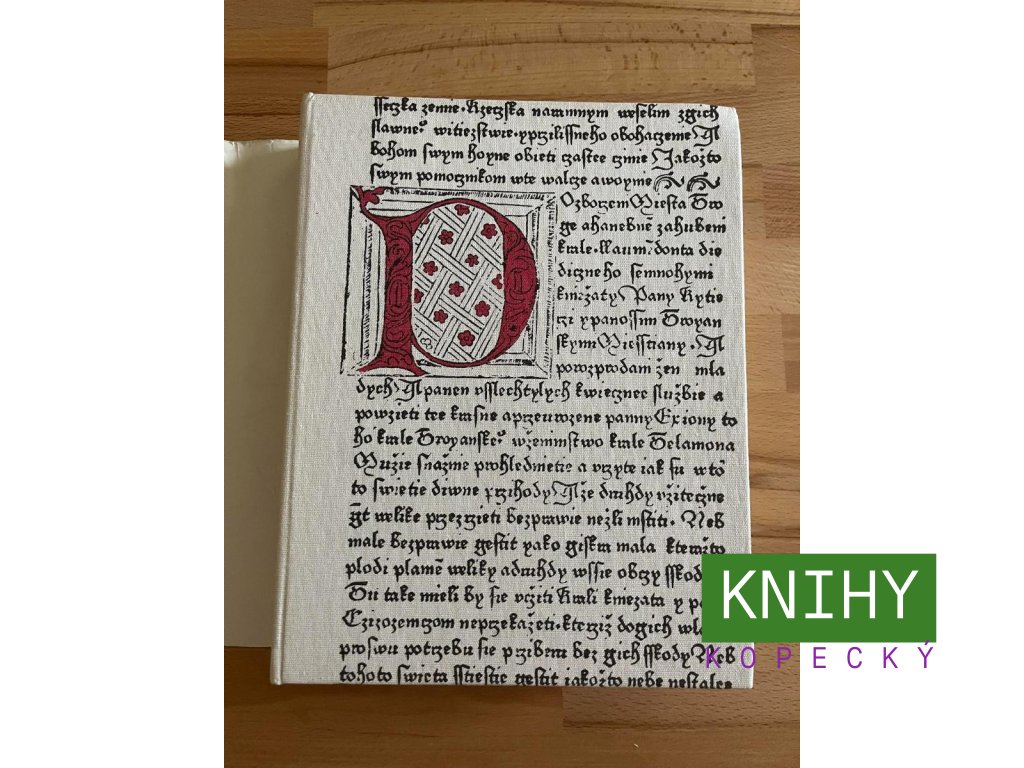 sseczka zemie. Rzeczska naramnym weselim zgich
slawne witiezstwie. yprzilissneho obohaczenie A
bohom swym hoyne obieti czastee czinie Jakožto
swym pomocznikom wte walcze a woynie
O zborzem Miesta Tro
ge a hanebně zahubeni
krale. Laum donta die
diczneho semnohymi
kniežaty Pany Rytie
rzi y panossim Troyan
skym Miessciany. A
porozprodam žen mla
dych A panen vsslechtylych kwiecznee službie a
powzieti tee krasne a przeurozene panny Exiony to
ho krale Troyanske wženimstwo krale Telamona
Mužie snažnie prohledmetie a vrzyte iak su w to
to swietie diwne przihody A že druhdy vžiteczne
gt welike przezrzieti bezprawie nežli mstiti. Neb
male bezprawie gestit yako giskra mala kteražto
plodi plamē weliky a druhdy wssie obrzy sskod
Tu take mieli by sie vcziti Krali kniežata y p
Czizozemczom neprzekažeti. kterziž dogich wl
pro swu potrzebu sie prziberu bez gich sskody Neb
tohoto swieta sstiestie gestit iakožto nebe nestalee
KNIHY
KOPECKÝ